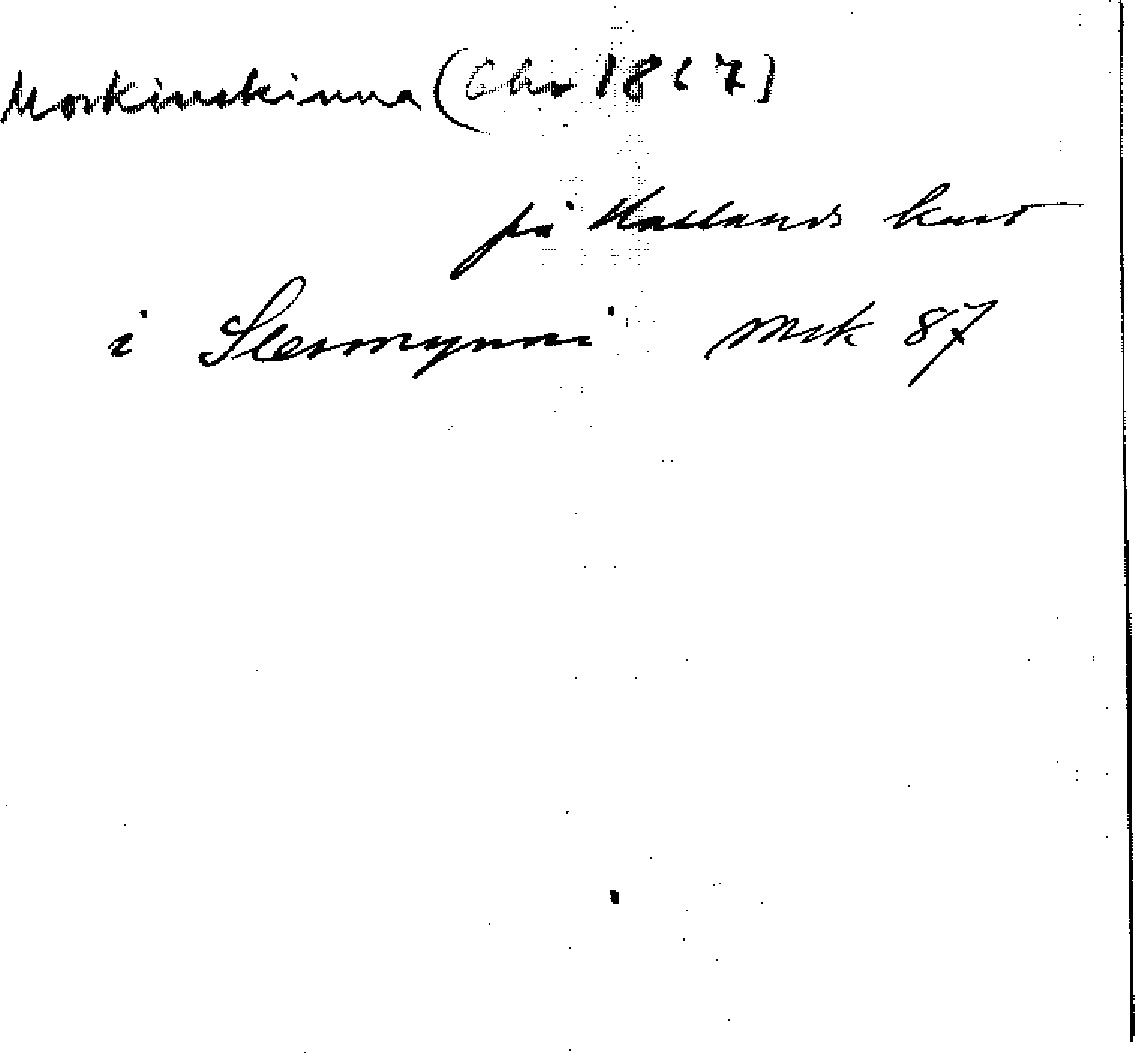 Morkinskinna (Chr 1867)
på Hallands kust
i Slesmynni Msk 87